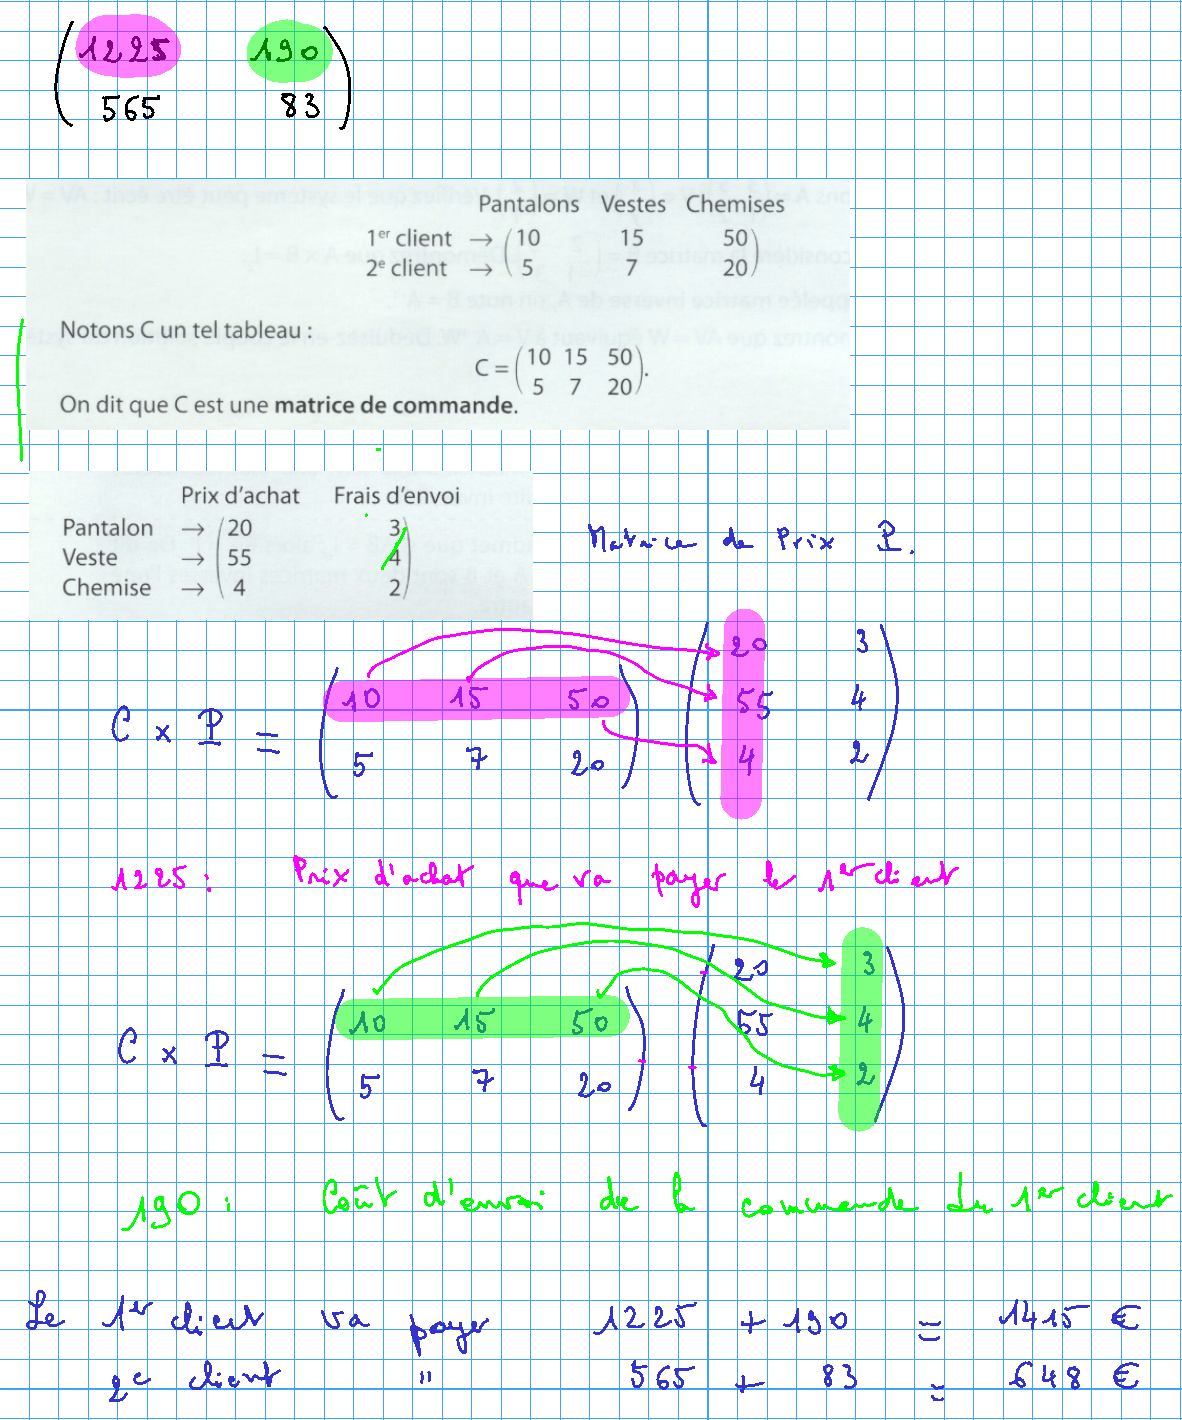 1225 190
565 83
Pantalons Vestes Chemises
1er client → 10 15 50
2e client → 5 7 20
Notons C un tel tableau :
C = (10 15 50
5 7 20).
On dit que C est une matrice de commande.
Prix d'achat Frais d'envoi
Pantalon → 20 3
Veste → 55 4
Chemise → 4 2
Matrice de Prix P.
20 3
10 15 50 55 4
C x P =
5 7 20 4 2
1225 : Prix d'achat que va payer le 1er client
20 3
10 15 50 55 4
C x P =
5 7 20 4 2
190 : Coût d'envoi de la commande du 1er client
Le 1er client va payer 1225 + 190 = 1415 €
2e client " 565 + 83 = 648 €